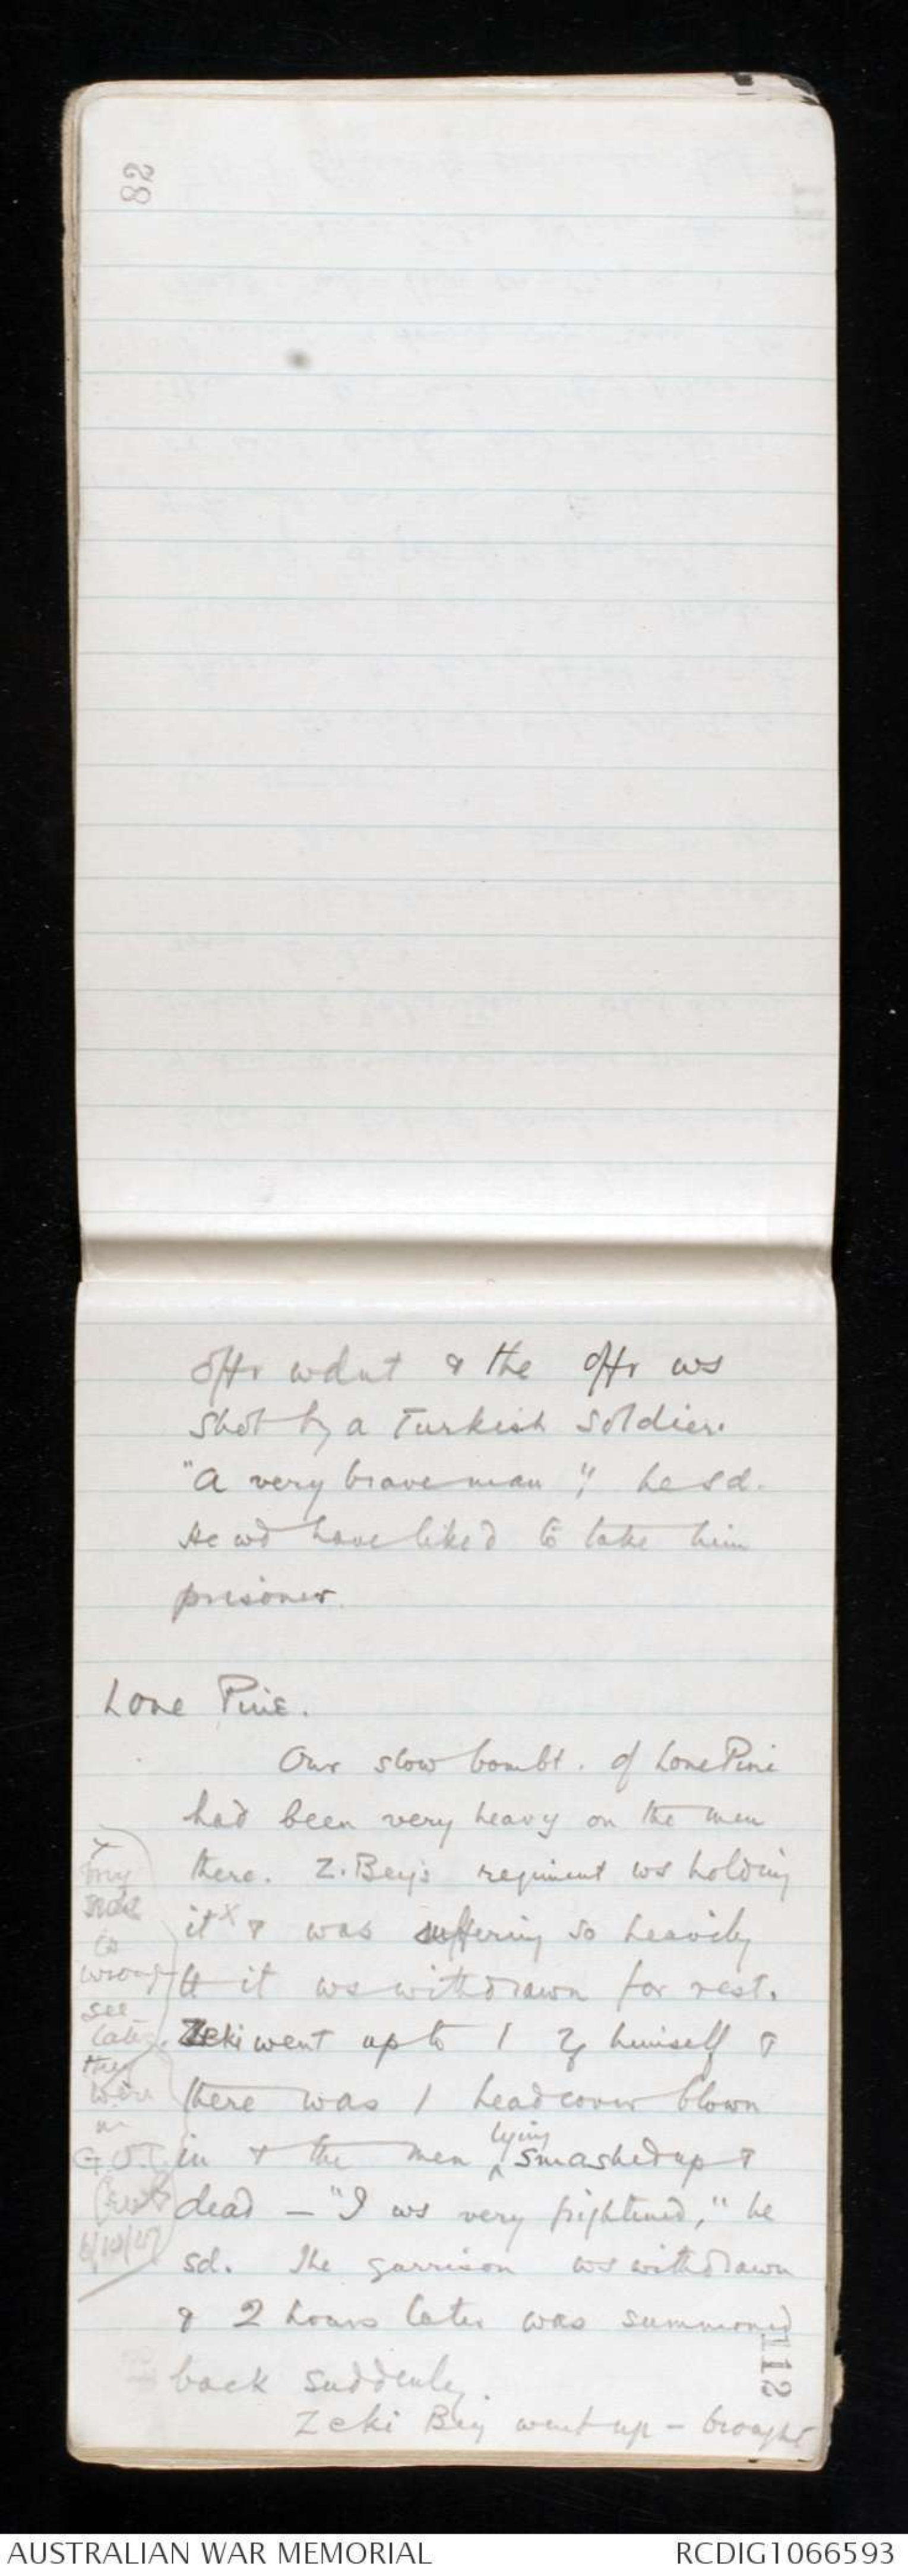 82
offr wdnt & the offr ws
shot by a Turkish soldier.
"A very brave man", he sd.
He wd have liked to take him
prisoner.
Lone Pine.
Our slow bombt. of Lone Pine
had been very heavy on the men
there. Z. Bey's regiment ws holding
it x & was suffering so heavily
tt it ws withdrawn for rest.
Zeki went up to 1 of himself &
there was 1 headcover blown
in & the men lying smashed up &
dead – "I ws very frightened," he
sd. The garrison ws withdrawn
& 2 hours later was summoned
back suddenly.
Zeki Bey went up – brought
x
my
note
is
wrong
see
later.
they
were
in
G.O.T.
112
AUSTRALIAN WAR MEMORIAL
RCDIG1066593